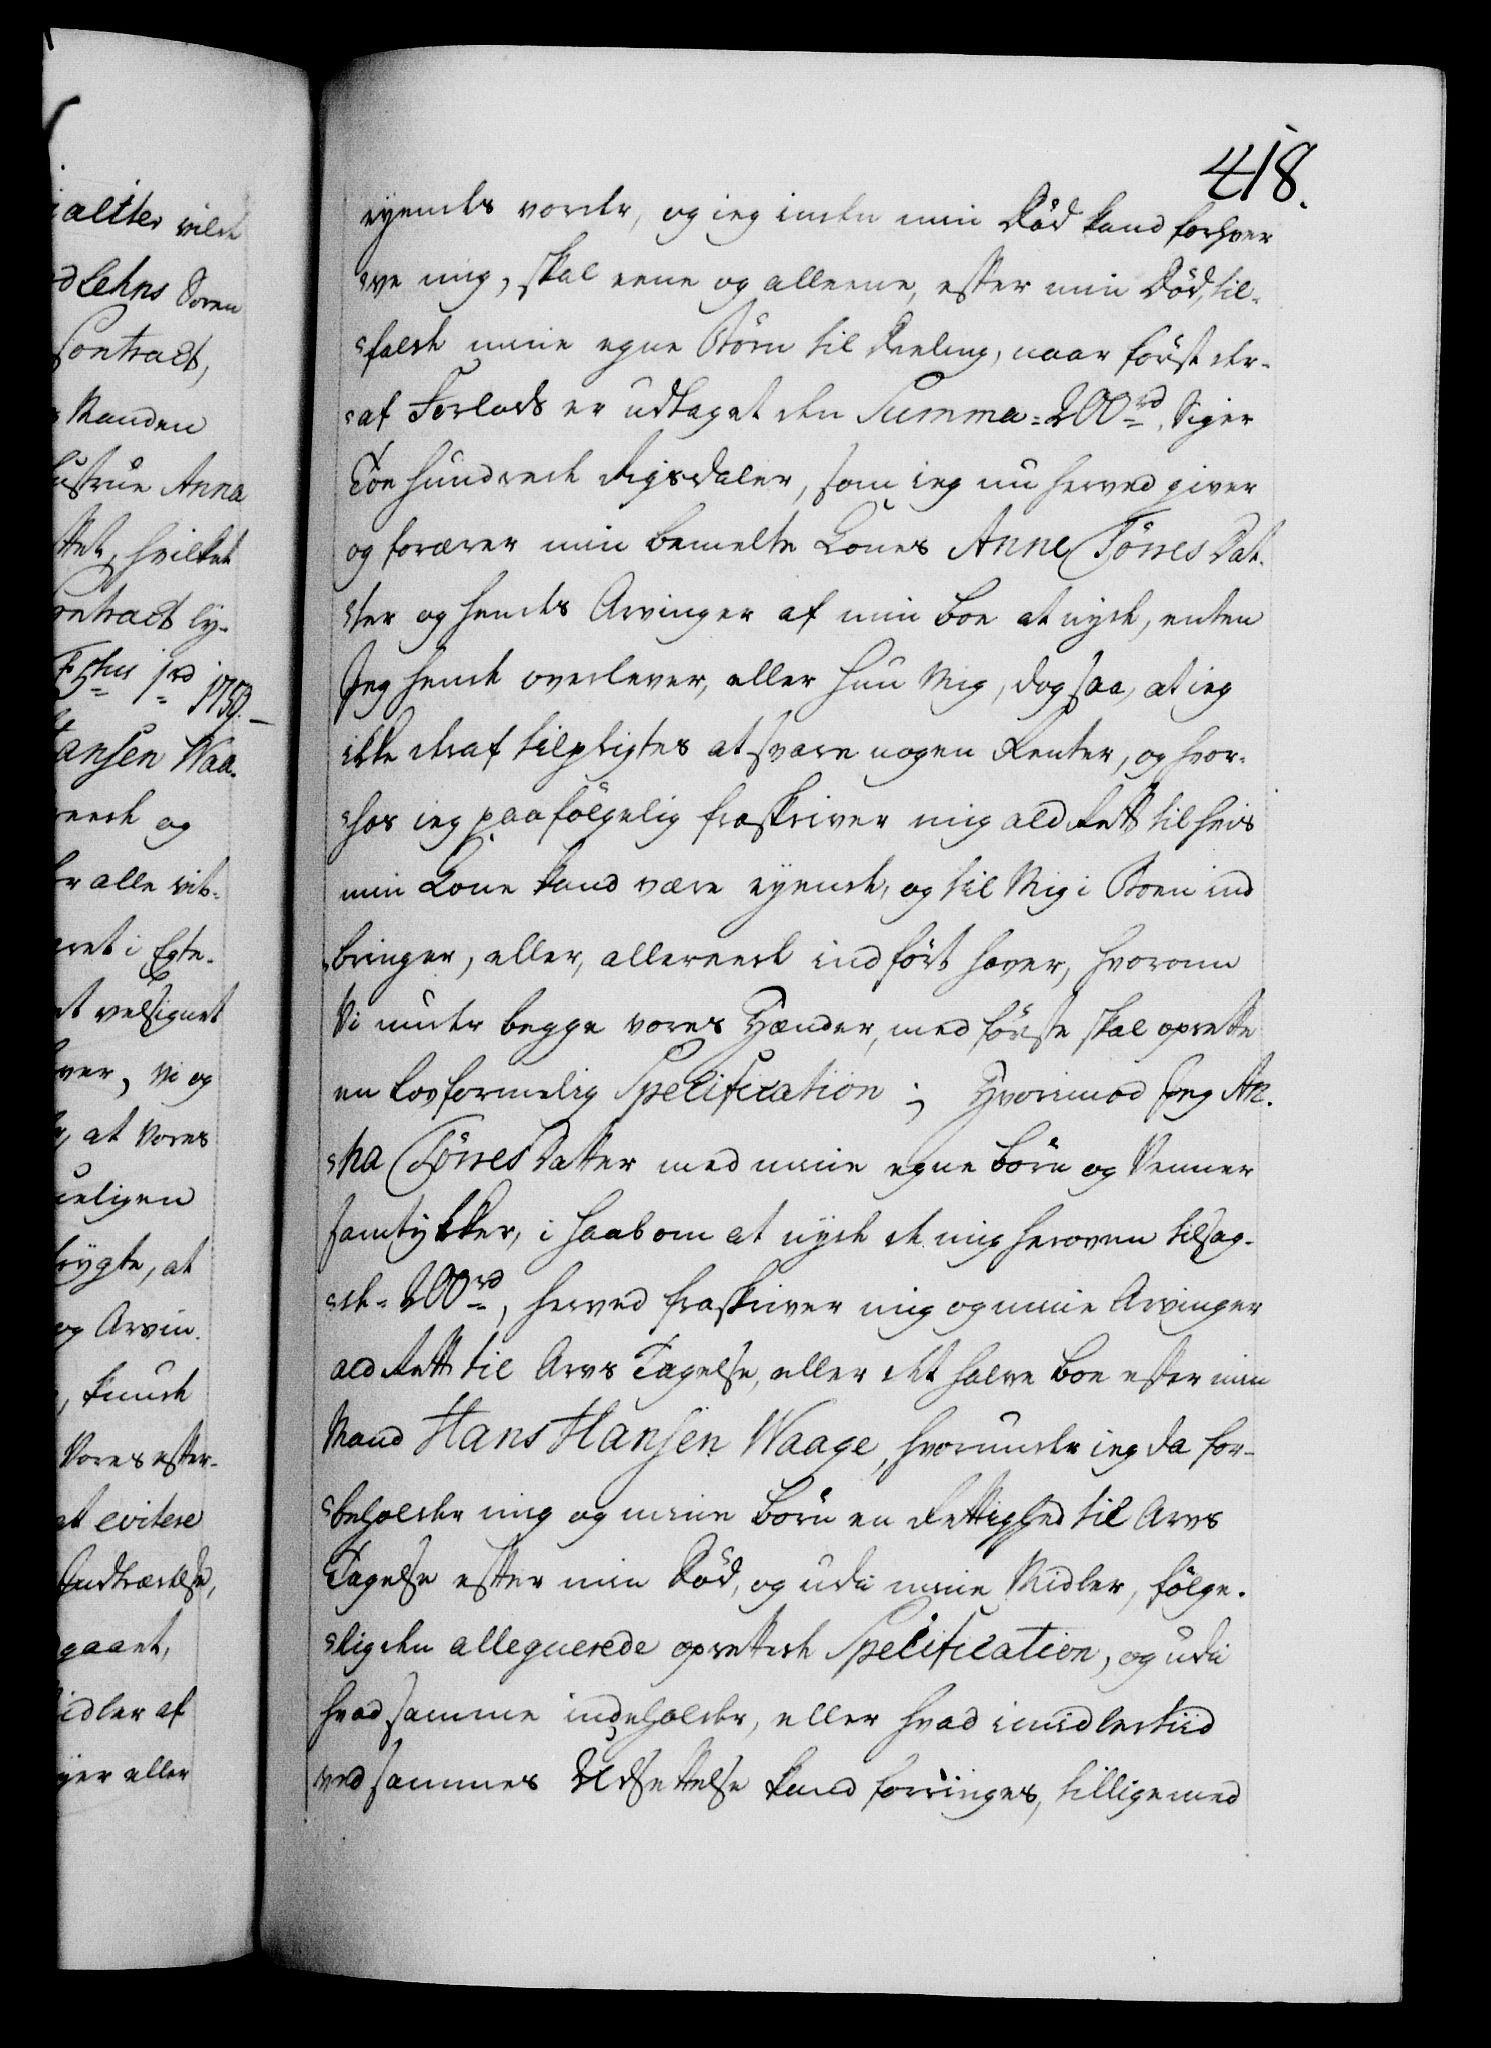 418.
eyendes vorde, og ieg inden min Död kand forhver
ve mig, skal eene og alleene, efter min Död, til-
falde mine egne Börn til Deeling, naar först der-
af Forlods er udtaget den Summa = 200rd, Siger
Toe hundrede Rigsdaler, som ieg nu herved giver
og forærer min bemelte Kones Anne Törres Dat-
ter og hendes Arvinger af min Boe at nyde, enten
Jeg hende overlever, eller Hun Mig, dog saa, at ieg
ikke deraf tilpligtes at svare nogen Renter, og hvor-
hos ieg paafölgelig fraskriver mig ald Rett til hvis
min Kone kand være eyende, og til Mig i Boen ind
bringer, eller, allereede indfört haver, hvorom
Vi under begge vores Hænder, med förste skal oprette
en lovformelig Specification; Hvorimod Jeg An-
na Törres Datter med mine egne Börn og Venner
samtykker, i Haab om at nyde de mig heroven tilsag-
de 200rd, herved fraskriver mig og mine Arvinger
ald Rett til Arvs Tagelse, eller det halve Boe efter min
Mand Hans Hansen Waage, hvorunder ieg da for-
beholder mig og mine Börn en Rettighed til Arvs
Tagelse efter min Död, og udi mine Midler, fölge-
lig den alleguerede oprettede Specification, og udi
hvad samme indeholder, eller hvad imidlertiid
ved sammes Udsettelse kand forringes, tilligemed
ialiter vilde
Lehns Soren
Contract,
Manden
ustrue Anna
hvilket
ontract ly-
1rd 1759.
ansen Waa-
og
alle vit-
i Egte-
velsignet
Vi og
at Vores
at
og Arvin-
Vores efter-
at evitere
gaaet,
idler af
eller